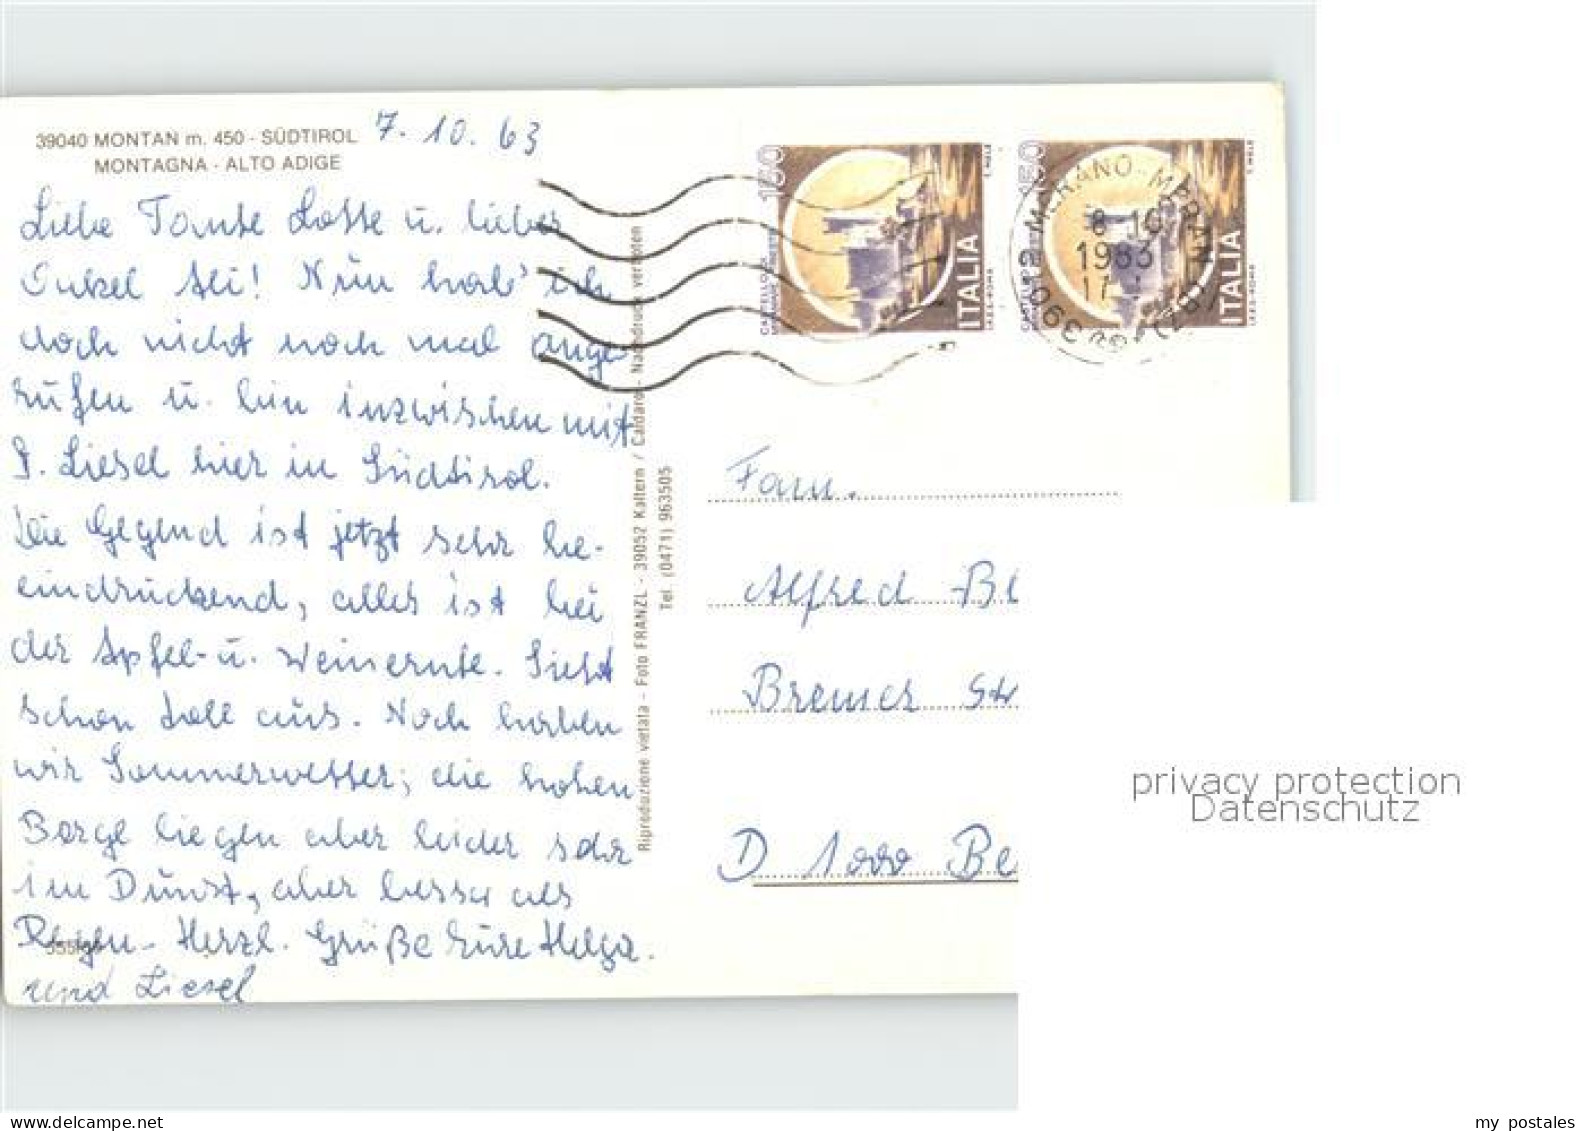 39040 MONTAN m. 450 - SÜDTIROL
MONTAGNA - ALTO ADIGE
7. 10. 63
Liebe Tante Lotte u. lieber
Onkel Ali! Nun hab' ich
doch nicht noch mal ange-
rufen u. bin inzwischen mit
T. Liesel hier in Südtirol.
Die Gegend ist jetzt sehr be-
eindruckend, alles ist bei
der Apfel- u. Weinernte. Sieht
schon toll aus. Noch haben
wir Sommerwetter; die hohen
Berge liegen aber leider sehr
im Dunst, aber besser als
Regen - Herzl. Grüße Eure Helga.
und Liesel
Riproduzione vietata - Foto FRANZL - 39052 Kaltern / Caldaro - Nachdruck verboten
Tel. (0471) 963505
150
CASTELLO DI
ITALIA
I.P.Z.S.-ROMA
150
ITALIA
I.P.Z.S.-ROMA
MERANO-MERAN (BZ)
8-10
1983
17
Fam.
Alfred Bl
Bremer St
D 1000 Be
privacy protection
Datenschutz
my postales